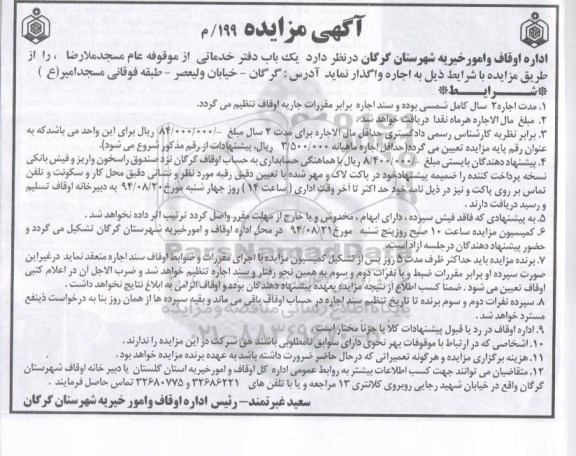 آگهی مزایده ۱۹۹/ م
اداره اوقاف وامورخیریه شهرستان گرگان درنظر دارد یک باب دفتر خدماتی از موقوفه عام مسجدملارضا ، را از
طریق مزایده با شرایط ذیل به اجاره واگذار نماید آدرس : گرگان - خیابان ولیعصر - طبقه فوقانی مسجدامیر(ع )
*شرایط*
۱. مدت اجاره۲ سال کامل شمسی بوده و سند اجاره برابر مقررات جاریه اوقاف تنظیم می گردد.
۲. مبلغ مال الاجاره هرماه نقدا دریافت خواهد شد .
۳. برابر نظریه کارشناس رسمی دادگستری حداقل مال الاجاره برای مدت ۲ سال مبلغ -/۸۴/۰۰۰/۰۰۰ ریال برای این واحد می باشدکه به
عنوان رقم پایه مزایده تعیین می گردد(حداقل اجاره ماهیانه ۳/۵۰۰/۰۰۰ ریال، پیشنهادات از رقم مذکور شروع می شود).
۴. پیشنهاددهندگان بایستی مبلغ ۸/۴۰۰/۰۰۰ ریال با هماهنگی حسابداری به حساب اوقاف گرگان نزد صندوق راسخون واریز و فیش بانکی
نسخه پرداخت کننده را ضمیمه پیشنهادخود در پاکت لاک و مهر شده با تعیین دقیق رقبه مورد نظر و نشانی دقیق محل کار و سکونت و تلفن
تماس بر روی پاکت و نیز در ذیل نامه خود حد اکثر تا آخر وقت اداری ( ساعت ۱۴ ) روز چهار شنبه مورخ۹۴/۰۸/۲۰ به دبیرخانه اوقاف تسلیم
و رسید دریافت دارند .
۵. به پیشنهادی که فاقد فیش سپرده ، دارای ابهام ، مخدوش و یا خارج از مهلت مقرر واصل گردد ترتیب اثر داده نخواهد شد .
۶. کمیسیون مزایده ساعت ۱۰ صبح روزپنج شنبه مورخ۹۴/۰۸/۲۱ در محل اداره اوقاف و امورخیریه شهرستان گرگان تشکیل می گردد و
حضور پیشنهاددهندگان درجلسه آزاد است.
۷. برنده مزایده باید حداکثر ظرف مدت ۵ روز پس از تشکیل کمیسیون مزایده با اجرای مقررات و ضوابط اوقاف سند اجاره منعقد نماید درغیراین
صورت سپرده او برابر مقررات ضبط و با نفرات دوم و سوم به همین نحو رفتار و سند اجاره تنظیم خواهد شد و ضرب الاجل آن در اعلام کتبی
اوقاف تعیین می شود . ضمنا کسب اطلاع از نتیجه مزایده بعهده پیشنهاد دهندگان بوده و اوقاف الزامی به ابلاغ نتایج نخواهد داشت .
۸. سپرده نفرات دوم و سوم برنده تا تاریخ تنظیم سند اجاره در حساب اوقاف باقی می ماند و بقیه سپرده ها از همان روز بنا به درخواست ذینفع
مسترد خواهد شد .
۹. اداره اوقاف در رد یا قبول پیشنهادات کلا یا جزئاً مختار است .
۱۰. اشخاصی که در ارتباط با موقوفات بهر نحوی دارای سوابق نامطلوبی باشند حق شرکت در این مزایده را ندارند .
۱۱. هزینه برگزاری مزایده و هرگونه تعمیراتی که درحال حاضر ضرورت داشته باشد به عهده برنده مزایده خواهد بود .
۱۲. متقاضیان می توانند جهت کسب اطلاعات بیشتر به روابط عمومی اداره کل اوقاف و امورخیریه استان گلستان یا دبیر خانه اوقاف شهرستان
گرگان واقع در خیابان شهید رجایی روبروی کلانتری ۱۳ مراجعه و یا با تلفن های ۳۲۶۸۶۲۲۱ و ۳۲۶۸۰۷۷۵ تماس حاصل فرمایند .
سعید غیرتمند – رئیس اداره اوقاف وامور خیریه شهرستان گرگان
ParsNamadData